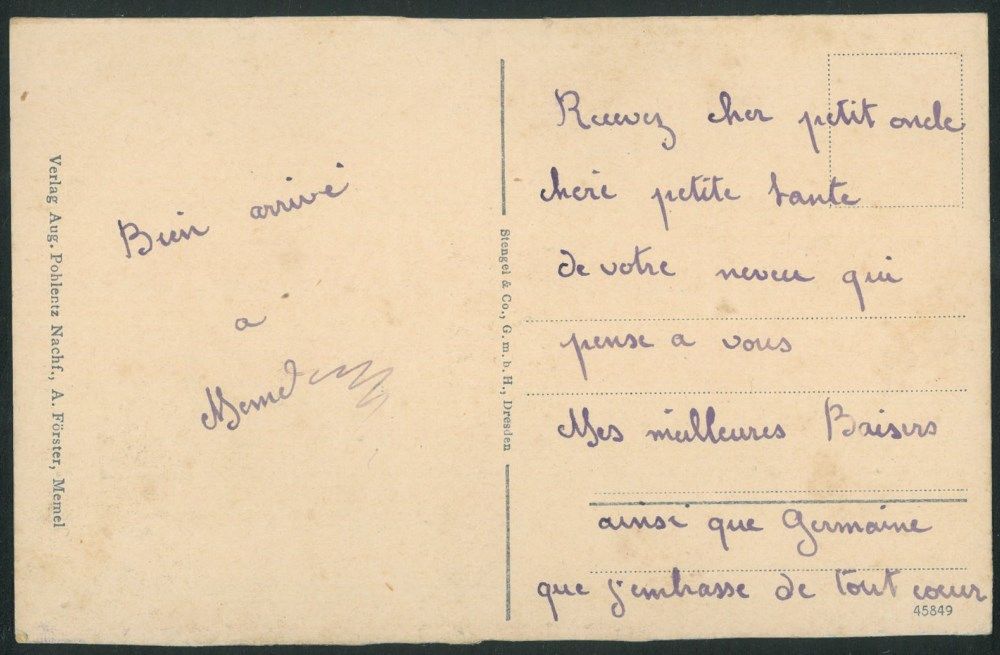 Verlag Aug. Pohlentz Nachf., A. Förster, Memel
Bien arrivé
a
Memel
Stengel & Co., G. m. b. H., Dresden
Recevez cher petit oncle
cheré petite tante
de votre neveu qui
pense a vous
Mes meilleures Baisers
ainsi que Germaine
que j'embrasse de tout coeur
45849